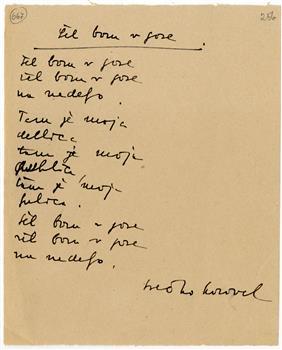 667
256
šel bom v gore
šel bom v gore
šel bom v gore
na nedeljo.
Tam je moja
tam je moja
tam je moja
šel bom v gore
šel bom v gore
na nedeljo.
srečko kosovel